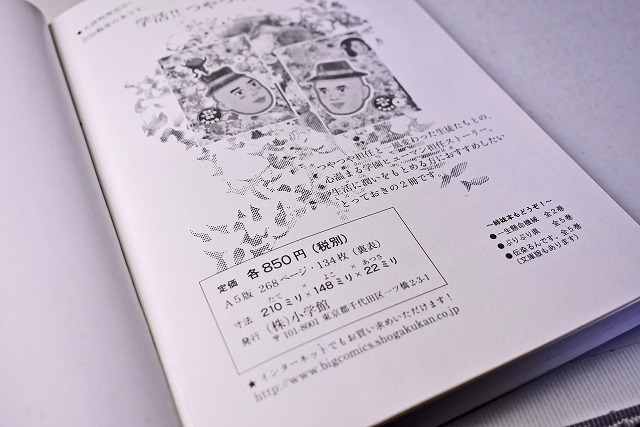 学活!!つやつや
つやつや担任と一風変わった生徒たちとの、
心温まる学園ヒューマン担任ストーリー。
生活に潤いをもとめる方におすすめしたい
とっておきの2冊です。
定価 各850円(税別)
A5版 268ページ・134枚(裏表)
たて よこ あつさ
寸法 210ミリ×148ミリ×22ミリ
発行 (株)小学館
〒101-8001 東京都千代田区一ツ橋2-3-1
★インターネットでもお買い求めいただけます!
http://www.bigcomics.shogakukan.co.jp
〜姉妹本もどうぞ!〜
●一生懸命機械 全2巻
●ぷりぷり県 全5巻
●伝染るんです。全5巻
(文庫版もあります)